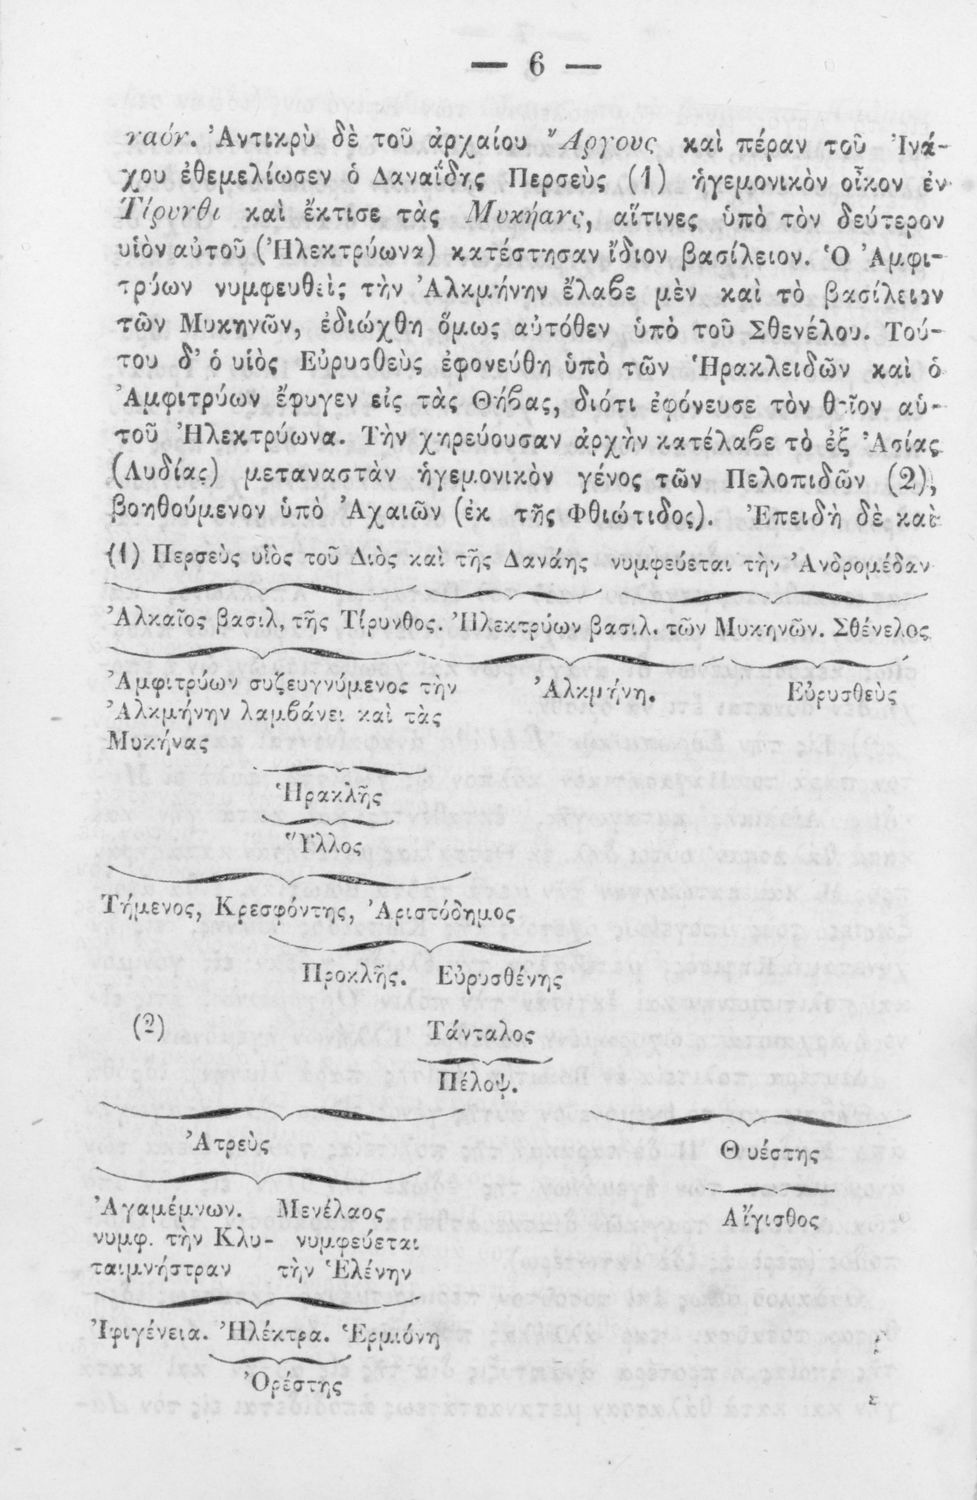 — 6 —
ναόν. Ἀντικρὺ δὲ τοῦ ἀρχαίου Ἄργους καὶ πέραν τοῦ Ἰνά-
χου ἐθεμελίωσεν ὁ Δαναΐδης Περσεὺς (1) ἡγεμονικὸν οἶκον ἐν
Τίρυνθι καὶ ἔκτισε τὰς Μυκήανς, αἵτινες ὑπὸ τὸν δεύτερον
υἱὸν αὐτοῦ (Ἠλεκτρύωνα) κατέστησαν ἴδιον βασίλειον. Ὁ Ἀμφι-
τρύων νυμφευθεὶς τὴν Ἀλκμήνην ἔλαβε μὲν καὶ τὸ βασίλειον
τῶν Μυκηνῶν, ἐδιώχθη ὅμως αὐτόθεν ὑπὸ τοῦ Σθενέλου. Τού-
του δ' ὁ υἱὸς Εὐρυσθεὺς ἐφονεύθη ὑπὸ τῶν Ἡρακλειδῶν καὶ ὁ
Ἀμφιτρύων ἔφυγεν εἰς τὰς Θήβας, διότι ἐφόνευσε τὸν θεῖον αὑ-
τοῦ Ἠλεκτρύωνα. Τὴν χηρεύουσαν ἀρχὴν κατέλαβε τὸ ἐξ Ἀσίας
(Λυδίας) μεταναστὰν ἡγεμονικὸν γένος τῶν Πελοπιδῶν (2),
βοηθούμενον ὑπὸ Ἀχαιῶν (ἐκ τῆς Φθιώτιδος). Ἐπειδὴ δὲ καὶ
(1) Περσεὺς υἱὸς τοῦ Διὸς καὶ τῆς Δανάης νυμφεύεται τὴν Ἀνδρομέδαν
Ἀλκαῖος βασιλ. τῆς Τίρυνθος. Ἠλεκτρύων βασιλ. τῶν Μυκηνῶν. Σθένελος
Ἀμφιτρύων συζευγνύμενος τὴν Ἀλκμήνη. Εὐρυσθεὺς
Ἀλκμήνην λαμβάνει καὶ τὰς
Μυκήνας
Ἡρακλῆς
Ὕλλος
Τήμενος, Κρεσφόντης, Ἀριστόδημος
Προκλῆς. Εὐρυσθένης
(2) Τάνταλος
Πέλοψ.
Ἀτρεὺς Θυέστης
Ἀγαμέμνων. Μενέλαος Αἴγισθος
νυμφ. τὴν Κλυ- νυμφεύεται
ταιμνήστραν τὴν Ἑλένην
Ἰφιγένεια. Ἠλέκτρα. Ἑρμιόνη
Ὀρέστης